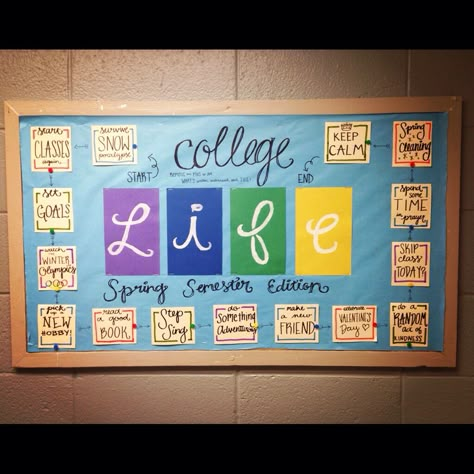 college
START
END
Life
Spring Semester Edition
survive
SNOW
pocalypse
start
CLASSES
again
set
GOALS
watch the
WINTER
Olympics
pick up
NEW
HOBBY!
read
a good
BOOK
Step
Sing
do
Something
Adventurous
make
a new
FRIEND
celebrate
VALENTINE'S
Day
do a
RANDOM
act of
KINDNESS
SKIP
class
TODAY?
Spend
some
TIME
in prayer
Spring
Cleaning
KEEP
CALM